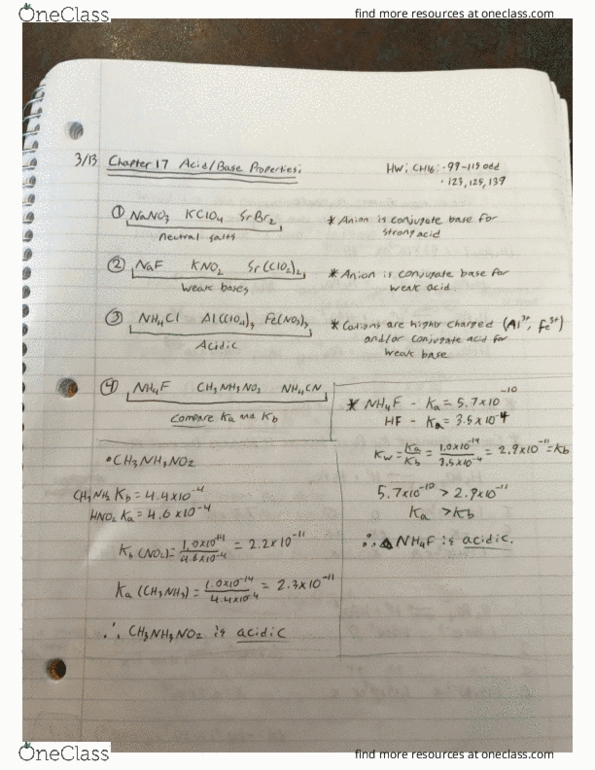 OneClass
find more resources at oneclass.com
3/13 Chapter 17 Acid/Base Properties:
HW: CH16: • 99-115 odd
• 123, 125, 139
① NaNO3 KClO4 SrBr2
neutral salts
* Anion is conjugate base for
strong acid
② NaF KNO2 Sr(ClO2)2
weak bases
* Anion is conjugate base for
weak acid.
③ NH4Cl Al(ClO4)3 Fe(NO3)3
Acidic
* Cations are higher charged (Al3+, Fe3+)
and/or conjugate acid for
weak base
④ NH4F CH3NH3NO2 NH4CN
Compare Ka and Kb
* NH4F - Ka = 5.7x10-10
HF - Ka = 3.5x10-4
Kw = Ka/Kb = 1.0x10-14/3.5x10-4 = 2.9x10-11 = Kb
5.7x10-10 > 2.9x10-11
Ka > Kb
∴ NH4F is acidic.
• CH3NH3NO2
CH3NH2 Kb = 4.4x10-4
HNO2 Ka = 4.6x10-4
Kb (NO2) = 1.0x10-14/4.6x10-4 = 2.2x10-11
Ka (CH3NH3) = 1.0x10-14/4.4x10-4 = 2.3x10-11
∴ CH3NH3NO2 is acidic
OneClass
find more resources at oneclass.com